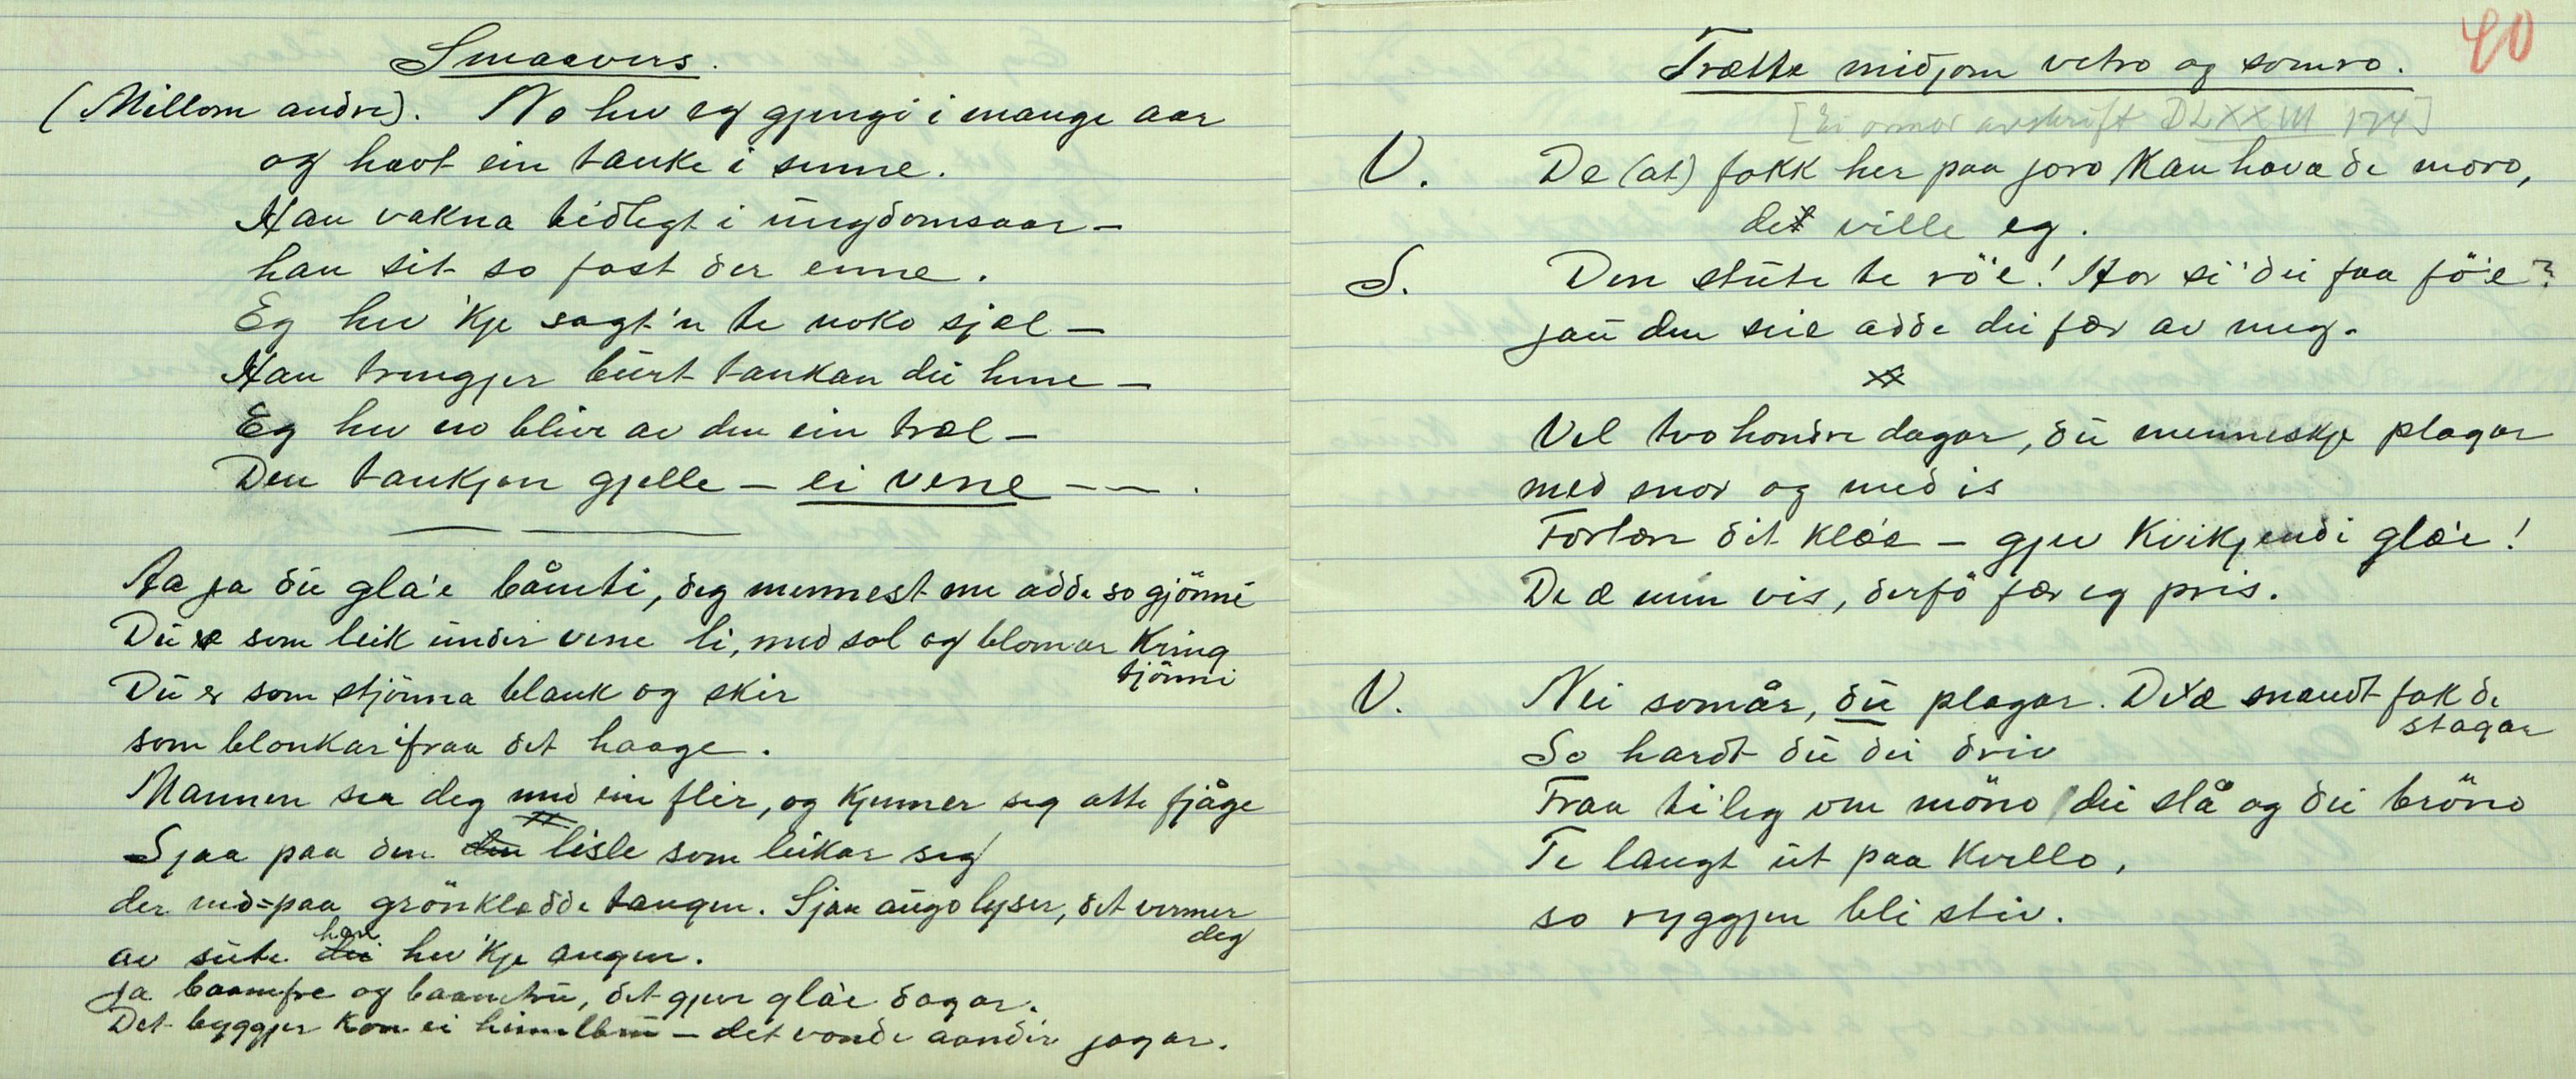 Smaavers.
(Millom andre). No hev eg gjengi i mange aar
og havt ein tanke i sinne.
Han vakna tidlegt i ungdomsaar -
han sit so fast der enne.
Eg hev 'kje sagt'n te noko sjæl -
Han trengjer burt tankan dei hine -
Eg hev no blive av den ein træl -
Den tankjen gjelle - ei vene - - .
Aa ja du gla'e båmti, deg minnest me adde so gjönni
Du æ som leik under vene li, med sol og blomar kring
tjönni
Du er som stjönna blank og skir
som blonkar ifraa det haage.
Mannen ser deg med ein flir, og kjenner seg atte fjåge
Sjaa paa den lisle som leikar seg
der ned=paa grönkledde tangen. Sjaa augo lyser, det vermer
deg
av sute han hev 'kje angen.
Ja baamfre og baamtru, det gjer gla'e dagar.
Det byggjer kon ei himelbru - det vonde aander jagar.
40
Trætte midjom vetro og somro.
[Ei onnor avskrift DLXXIII 174]
V. De (at) fokk her paa joro kan hava de moro,
det ville eg.
S. Den stute te rö'e! Hor si' dei faa fö'e?
jau den sie adde dei fær av meg.
Vel tvo hondre dagar, du menneskje plagar
med snor og med is
Fortær dit klæ'e - gjev kvikjendi glæ'e!
De æ min vis, derfö fær eg pris.
V. Nei somår, du plagar. De æ snaudt fok de
stagar
So hardt du dei driv
Fraa ti'leg om möno dei slå og dei bröno
Te langt ut paa kvello,
so ryggjen bli stiv.